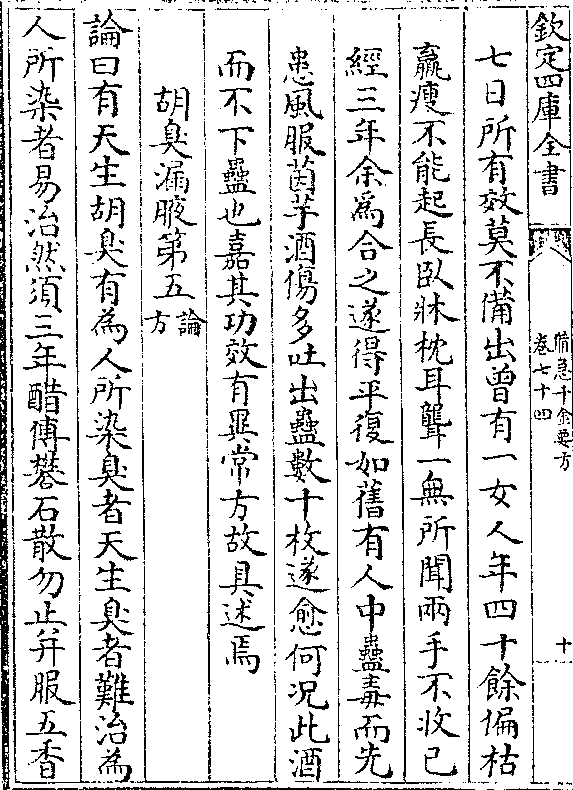 欽定四庫全書
備急千金要方
卷七十四
十
七日所有效莫不備出曾有一女人年四十餘偏枯
羸瘦不能起長臥牀枕耳聾一無所聞兩手不收已
經三年余為合之遂得平復如舊有人中蠱毒而先
患風服茵芋酒傷多吐出蠱數十枚遂愈何況此酒
而不下蠱也嘉其功效有異常方故具述焉
胡臭漏腋第五論方
論曰有天生胡臭有為人所染臭者天生臭者難治為
人所染者易治然須三年醋傅礬石散勿止并服五香